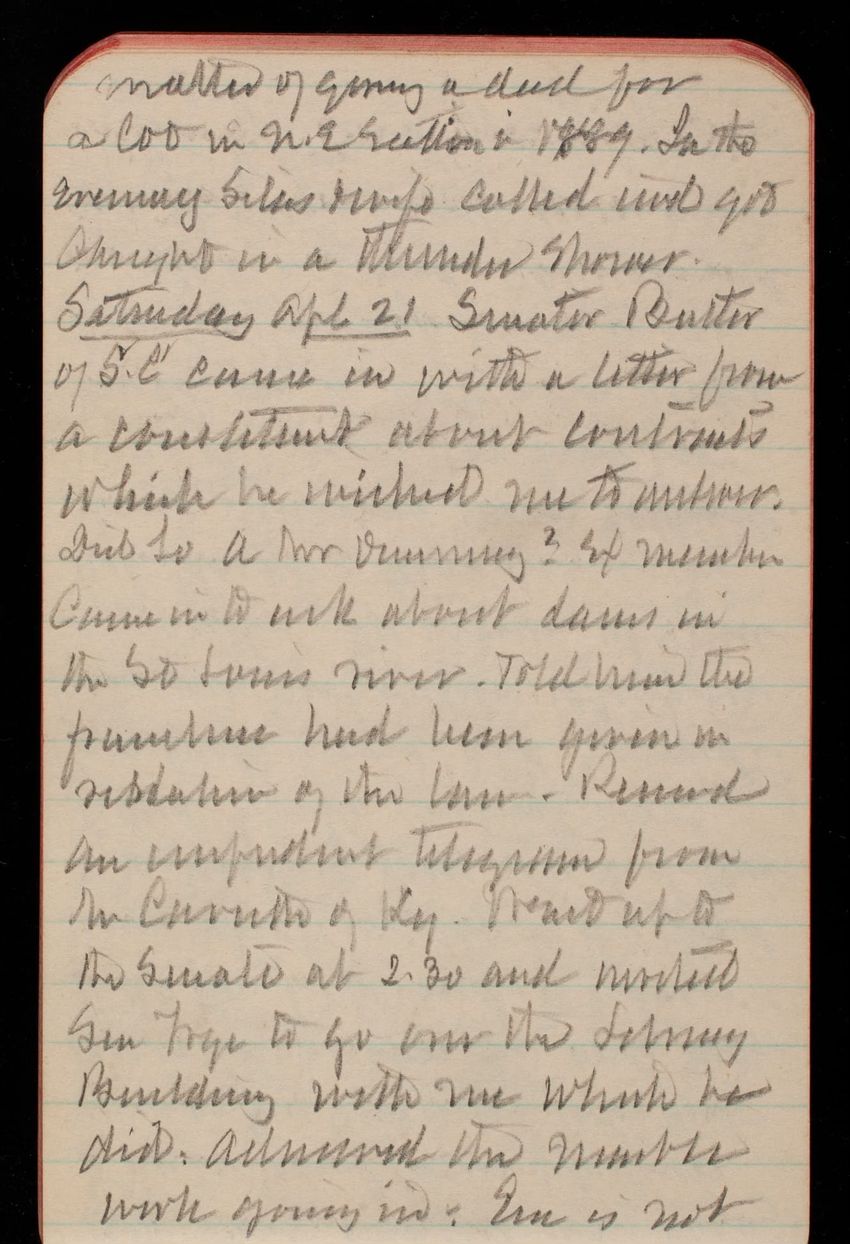 matter of giving a deed for
a lot in N.E Section in 1889. In the
Evening Silas & wife called and got
Caught in a thunder shower.
Saturday Apl 21 Senator Butler
of S.C. came in with a letter from
a constituent about contracts
which he wished me to answer.
Did so A Mr ? Ex member
Came in to ask about dams in
the St Louis river. Told him the
franchise had been given in
violation of the law. Received
an impudent telegram from
Mr of Ky. Went up to
the Senate at 2.30 and invited
Sen Frye to go over the Library
Building with me which he
did. Admired the marble
work going in. Eva is not